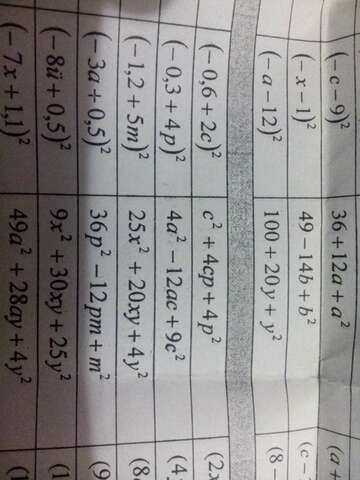 (−c−9)² 36+12a+a² (a+
(−x−1)² 49−14b+b² (c−
(−a−12)² 100+20y+y² (8−
(−0,6+2c)² c²+4cp+4p² (2x
(−0,3+4p)² 4a²−12ac+9c² (4
(−1,2+5m)² 25x²+20xy+4y² (8
(−3a+0,5)² 36p²−12pm+m² (9
(−8ü+0,5)² 9x²+30xy+25y² (1
(−7x+1,1)² 49a²+28ay+4y² (